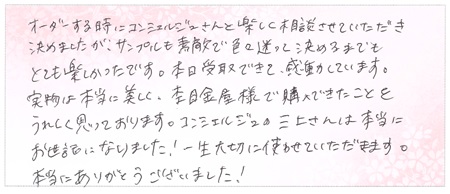 オーダーする時にコンシェルジュさんと楽しく相談させていただき
決めましたが、サンプルも素敵で色々迷って決めるまでも
とても楽しかったです。本日受取できて、感動しています。
実物は本当に美しく、杢目金屋様で購入できたことを
うれしく思っております。コンシェルジュの三上さんは本当に
お世話になりました！一生大切に使わせていただきます。
本当にありがとうございました！